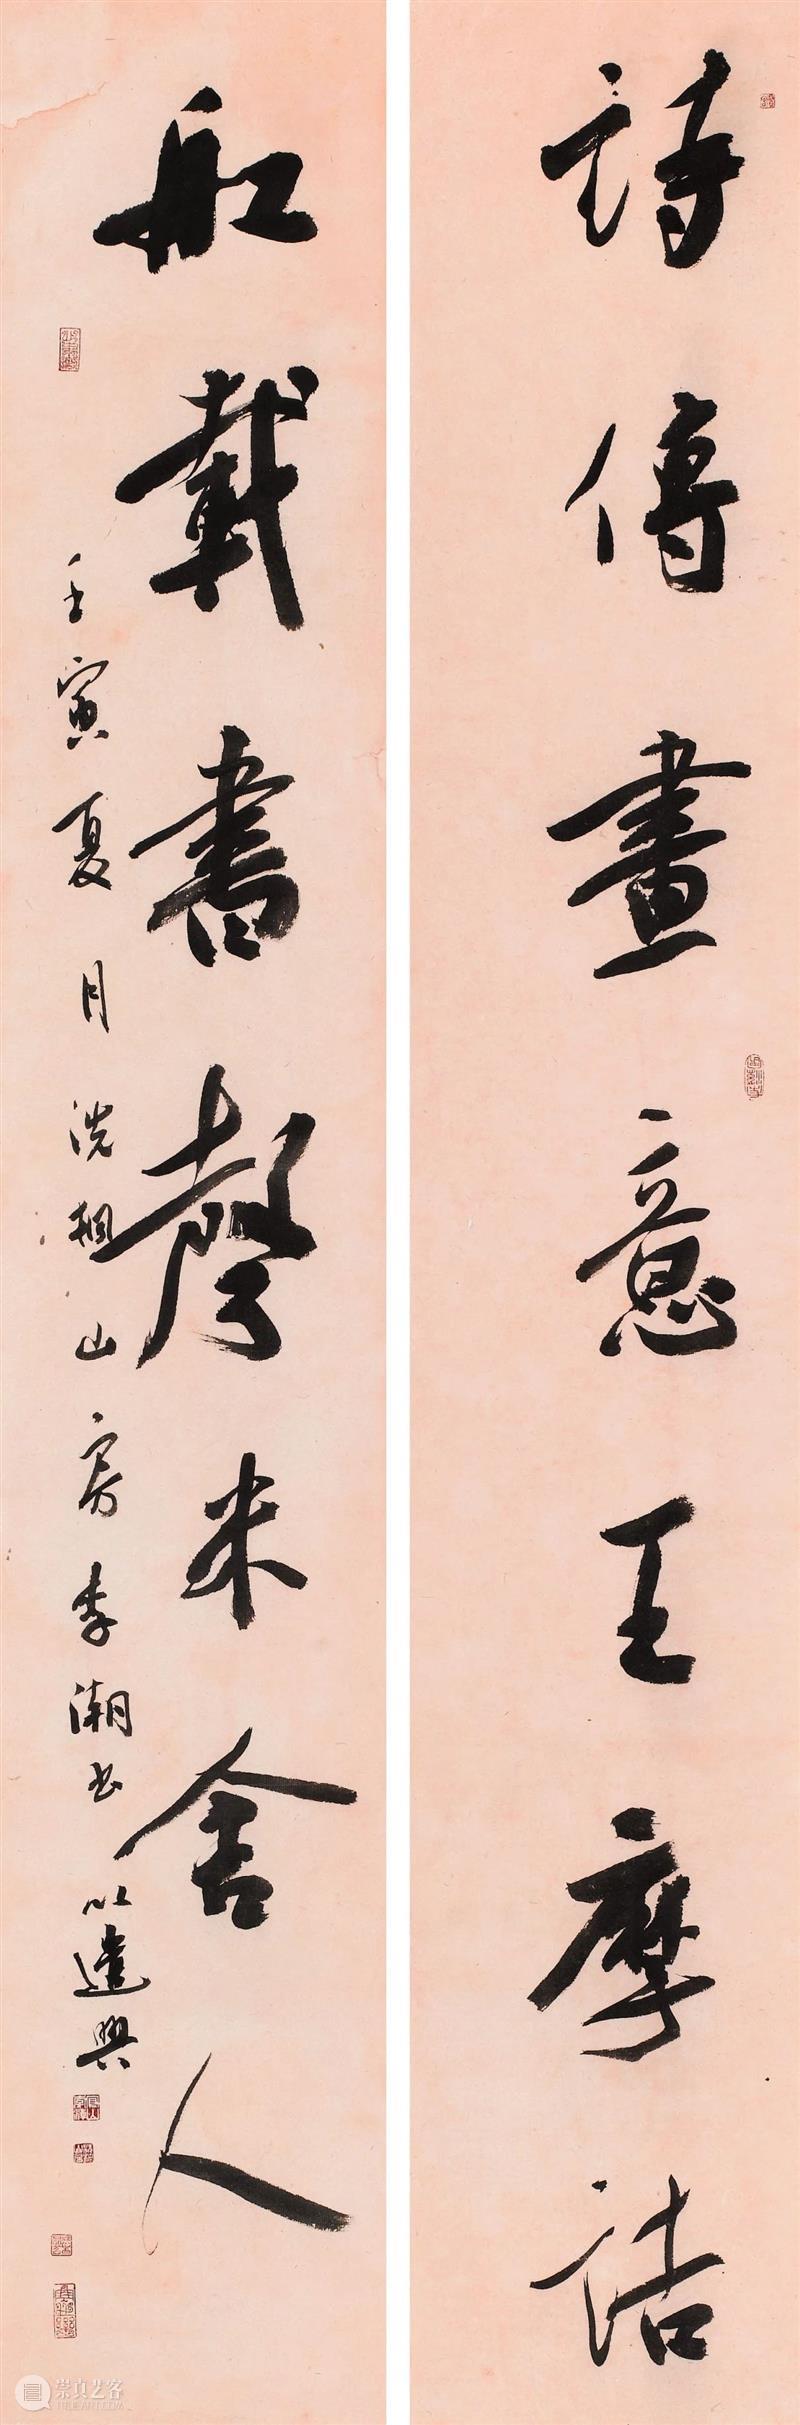 詩傳畫意王摩詰
船載書聲米舍人
壬寅夏月洗楓山房李潮书以遣興
崇真艺客